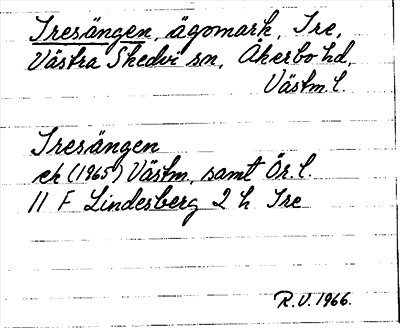 Tresängen, ägomark, Tre,
Västra Skedvi sn, Åkerbo hd,
Västm l.
Tresängen
ek (1965) Västm. samt Ör. l.
11 F Lindesberg 2 h Tre
R.V. 1966.